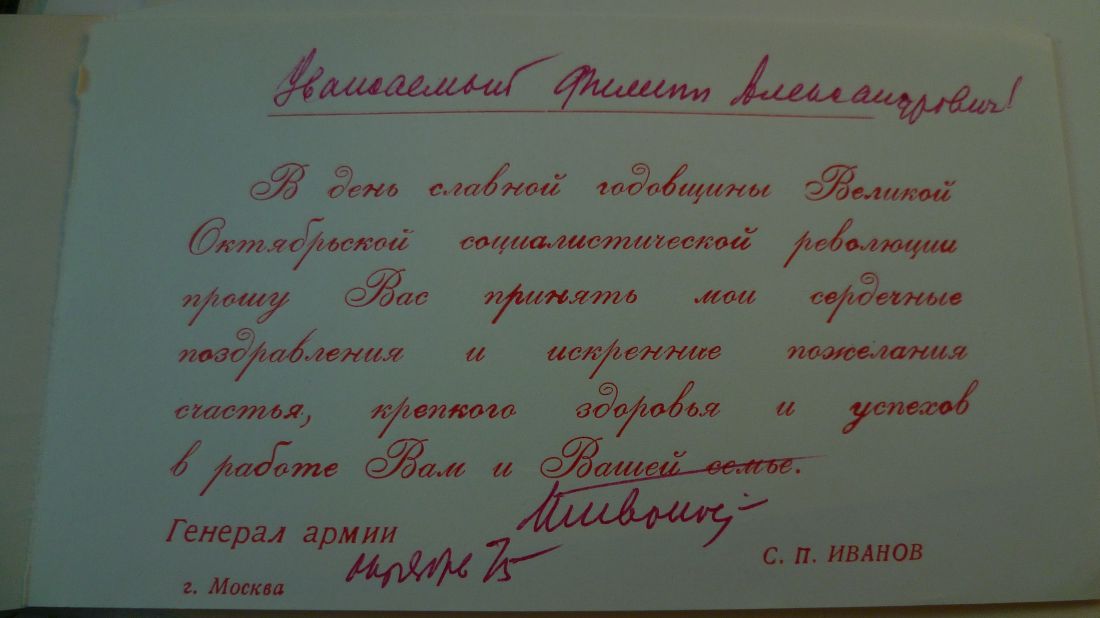 Уважаемый Филипп Александрович!
В день славной годовщины Великой
Октябрьской социалистической революции
прошу Вас принять мои сердечные
поздравления и искренние пожелания
счастья, крепкого здоровья и успехов
в работе Вам и Вашей семье.
Генерал армии
октябрь 75
С. П. ИВАНОВ
г. Москва